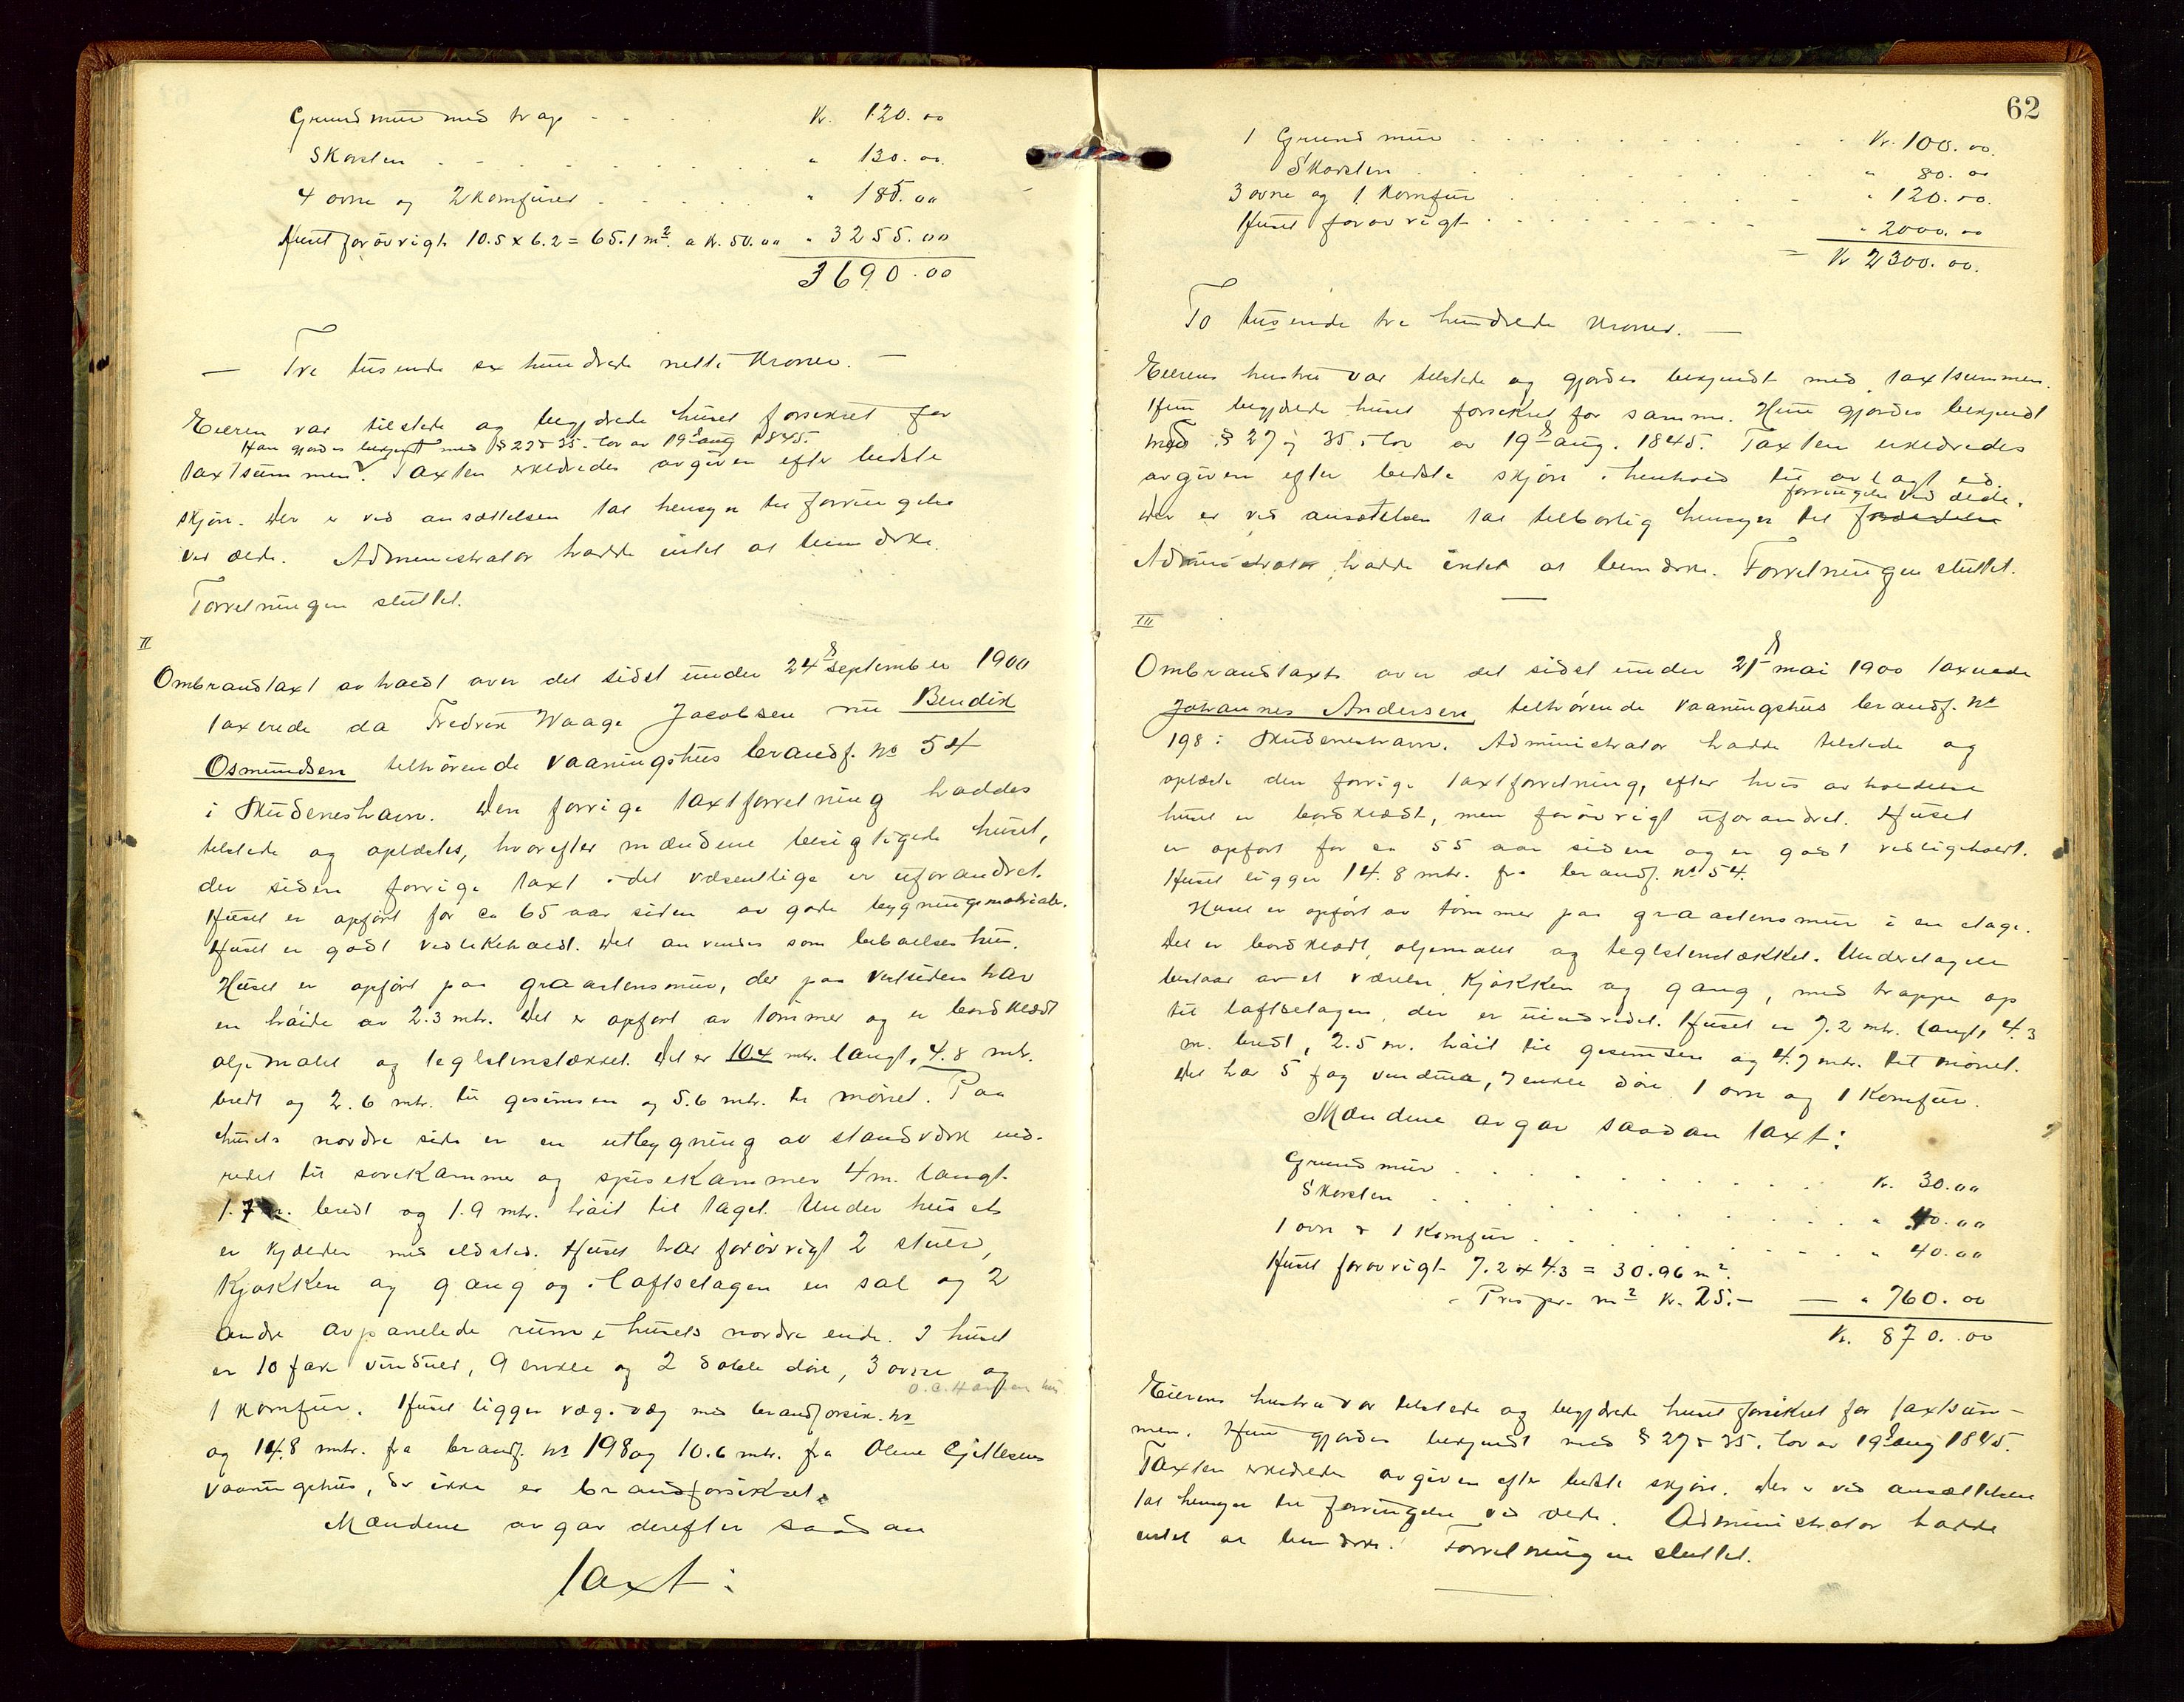 Grundmur med trap - - - - Kr. 120.00
Skorsten - - - - - - " 130.00
4 ovne og 2 Komfurer - - - - " 185.00
Huset forøvrigt 10.5 x 6.2 = 65.1 m². a Kr. 50.00 " 3255.00
3690.00
— Tre tusende sex hundrede nitti Kroner. —
Eieren var tilstede og begjærede huset forsikret for
Han gjordes bekjent med § 27 & 35 - lov av 19d aug 1845.
taxtsummen. Taxten erklædredes avgiven efter bedste
skjøn. Der er ved ansættelsen tat hensyn til forringelse
ved ælde. Administrator hadde intet at bemærke.
Forretningen sluttet.
II
Ombrandtaxt avholdt over det sidst under 24d september 1900
taxerede da Fredrik Waage Jacobsen nu Bendix
Osmundsen tilhørende vaaningshus brandf. No 54
i Skudeneshavn. Den forrige taxtforretning haddes
tilstede og oplæstes, hvorefter mændene besigtigede huset,
der siden forrige taxt i det væsentlige er uforandret.
Huset er opført for ca 65 aar siden av gode bygningsmaterialer.
Huset er godt vedlikeholdt. Det anvendes som beboelseshus.
Huset er opført paa graastensmur, der paa vestsiden har
en høide av 2.3 mtr. Det er opført av tømmer og er bordklædt
oljemalet og teglstenstækket. Det er 10.4 mtr. langt, 4.8 mtr.
bredt og 2.6 mtr. til gesimsen og 5.6 mtr. til mønet. Paa
husets nordre side er en utbygning av standværk ind-
redet til sovekammer og spisekammer 4 m. langt
1.7 m. bredt og 1.9 mtr. høit til taget. Under huset
er kjælder med ildsted. Huset har forøvrigt 2 stuer,
Kjøkken og gang og i loftsetagen en sal og 2
andre avpanelede rum i husets nordre ende. I huset
er 10 fak vinduer, 9 enkle og 2 doble døre, 3 ovne og
O. C. Hansen hus
1 komfur. Huset ligger væg i væg med brandforsik. No
og 14.8 mtr. fra brandf. No 198 og 10.6 mtr. fra Olene Gjellesens
vaaningshus, der ikke er brandforsikret.
Mændene avgav derefter saadan
taxt:
62
1 Grundmur . . . . . . . . Kr. 100.00.
Skorsten . . . . . . . . " 80.00
3 ovne og 1 Komfur . . . . . . " 120.00.
Huset forøvrigt . . . . . . " 2000.00
= Kr 2300.00.
To tusende tre hundrede Kroner. —
Eierens hustru var tilstede og gjordes bekjendt med taxtsummen.
Hun begjærede huset forsikret for samme. Hun gjordes bekjendt
med § 27 og 35 i lov av 19d aug. 1845. Taxten erklædredes
avgiven efter bedste skjøn i henhold til avlagt ed.
forringelse ved ælde.
Der er ved ansættelsen tat tilbørlig hensyn til
Administrator hadde intet at bemærke. Forretningen sluttet.
III
Ombrandtaxt over det sidst under 21d mai 1900 taxerede
Johannes Andersen tilhørende vaaningshus brandf. No
198 i Skudeneshavn. Administrator hadde tilstede og
oplæste den forrige taxtforretning, efter hvis avholdelse
huset er bordklædt, men forøvrigt uforandret. Huset
er opført for ca 55 aar siden og er godt vedligeholdt.
Huset ligger 14.8 mtr. fra brandf. No 54.
Huset er opført av tømmer paa graastensmur i en etage.
Det er bordklædt, oljemalet og teglstenstækket. Underetagen
bestaar av et værelse, Kjøkken og gang, med trappe op
til loftsetagen, der er uindredet. Huset er 7.2 mtr. langt, 4.3
m. bredt, 2.5 m. høit til gesimsen og 4.7 mtr. til mønet.
Det har 5 fag vinduer, 7 enkle døre 1 ovn og 1 Komfur.
Mændene avgav saadan taxt:
Grundmur . . . . . . . . . Kr. 30.00
Skorsten . . . . . . . . . " 40.00
1 ovn & 1 Komfur . . . . . . . " 40.00
Huset forøvrigt 7.2 x 4.3 = 30.96 m².
- Pris pr. m² Kr. 25.- — " 760.00
Kr. 870.00
Eierens hustru var tilstede og begjærede huset forsikret for taxtsum-
men. Hun gjordes bekjendt med § 27 & 35 i lov av 19d aug 1845.
Taxten erklædredes avgiven efter bedste skjøn. Der er ved ansættelsen
tat hensyn til forringelse ved ælde. Administrator hadde
intet at bemærke. Forretningen sluttet.